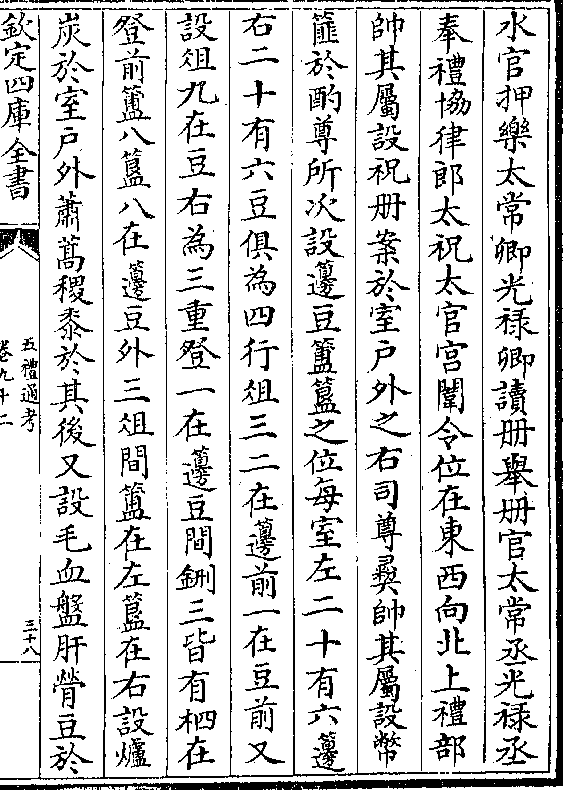 水官押樂太常卿光禄卿讀册舉册官太常丞光禄丞
奉禮協律郎太祝太官宫闈令位在東西向北上禮部
帥其屬設祝册案於室户外之右司尊彛帥其屬設幣
篚於酌尊所次設籩豆簠簋之位每室左二十有六籩
右二十有六豆俱為四行俎三二在籩前一在豆前又
設俎九在豆右為三重登一在籩豆間鉶三皆有柶在
登前簠八簋八在籩豆外三俎間簠在左簋在右設爐
炭於室户外蕭蒿稷黍於其後又設毛血盤肝膋豆於
欽定四庫全書
五禮通考
卷九十二
三十八